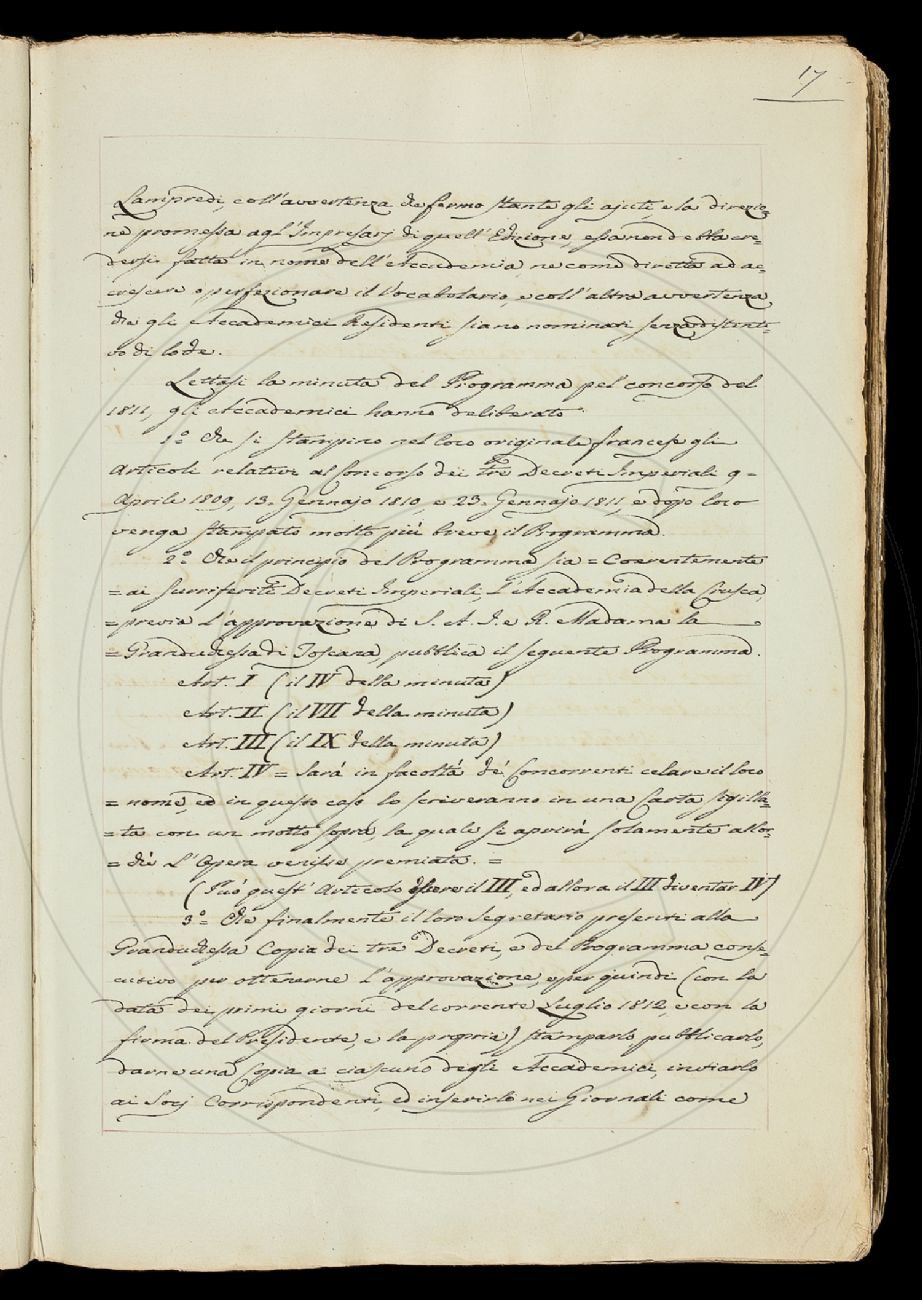 17
Lampredi, e coll'avvertenza che fermo stante gli ajuti, e la direzio=
ne promessa agl'Impresarj di quell'Edizione, essa non debba cre=
dersi fatta in nome dell'Accademia ne come diretta ad ac=
crescere o perfezionare il Vocabolario, e coll'altra avvertenza,
che gli Accademici Residenti siano nominati senza distinti=
vo di lode.
Lettasi la minuta del Programma pel concorso del
1811, gli Accademici hanno deliberato:
1.º Che si stampino nel loro originale francese gli
Articoli relativi al Concorso dei tre Decreti Imperiali 9=
Aprile 1809, 13. Gennajo 1810, e 23. Gennajo 1811, e dopo loro
venga stampato molto più breve il Programma.
2.º Che il principio del Programma sia = Coerentemente
= ai surriferiti Decreti Imperiali, l'Accademia della Crusca,
= previa l'approvazione di S. A. I. e R. Madama la
= Granduchessa di Toscana, pubblica il seguente Programma.
Art. I (il IV della minuta)
Art. II (il VII della minuta)
Art. III (il IX della minuta)
Art. IV = Sarà in facoltà de' Concorrenti celare il loro
= nome, ed in questo caso lo scriveranno in una Carta sigilla=
= ta con un motto sopra, la quale si aprirà solamente allor=
= chè l'Opera venisse premiata. =
(Può quest'Articolo essere il III, ed allora il III diventar IV)
3.º Che finalmente il loro Segretario presenti alla
Granduchessa Copia dei tre Decreti, e del Programma conse=
cutivo per ottenerne l'approvazione, e per quindi (con la
data dei primi giorni del corrente Luglio 1812, e con la
firma del Presidente, e la propria) stamparlo, pubblicarlo,
darne una Copia a ciascuno degli Accademici, inviarlo
ai Socj Corrispondenti, ed inserirlo nei Giornali come